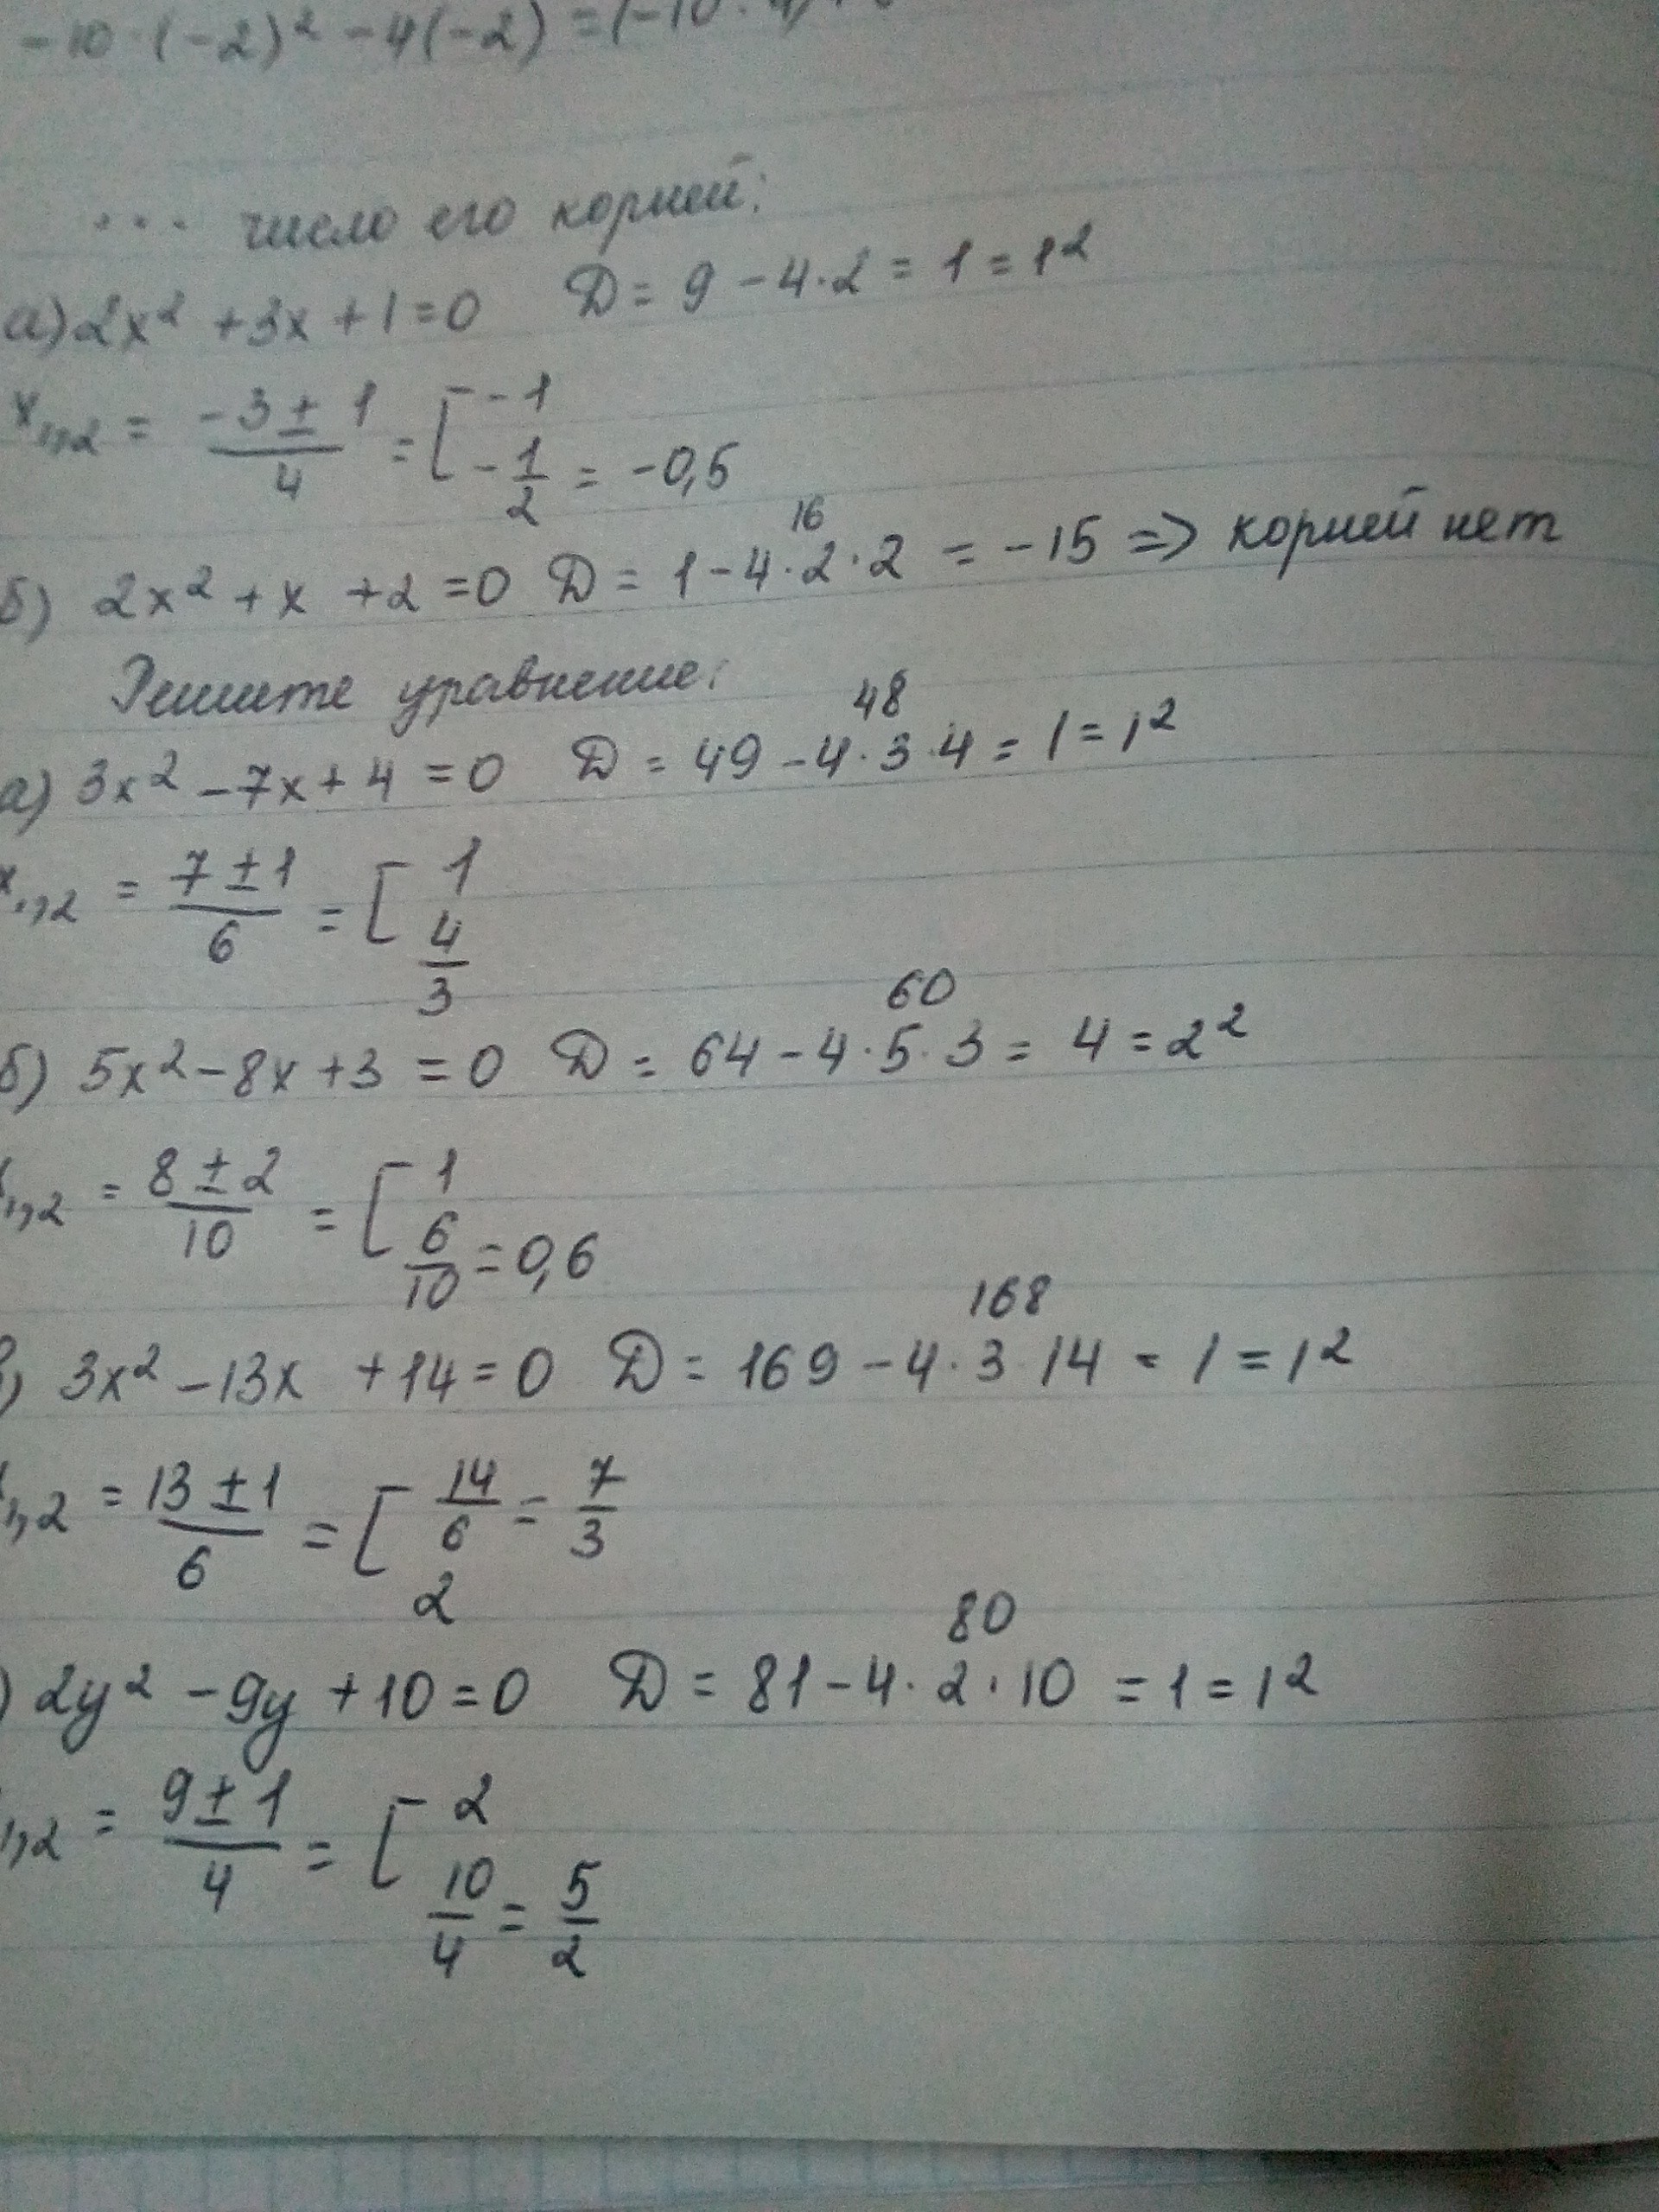 -10·(-2)² - 4(-2) = (-10·4)
... число его корней:
а) 2x² + 3x + 1 = 0 D = 9 - 4·2 = 1 = 1²
x₁,₂ = (-3 ± 1)/4 = [ -1
-1/2 = -0,5
16
б) 2x² + x + 2 = 0 D = 1 - 4·2·2 = -15 => корней нет
Решите уравнение:
48
а) 3x² - 7x + 4 = 0 D = 49 - 4·3·4 = 1 = 1²
x₁,₂ = (7 ± 1)/6 = [ 1
4/3
60
б) 5x² - 8x + 3 = 0 D = 64 - 4·5·3 = 4 = 2²
x₁,₂ = (8 ± 2)/10 = [ 1
6/10 = 0,6
168
) 3x² - 13x + 14 = 0 D = 169 - 4·3·14 = 1 = 1²
x₁,₂ = (13 ± 1)/6 = [ 14/6 = 7/3
2
80
) 2y² - 9y + 10 = 0 D = 81 - 4·2·10 = 1 = 1²
₁,₂ = (9 ± 1)/4 = [ 2
10/4 = 5/2